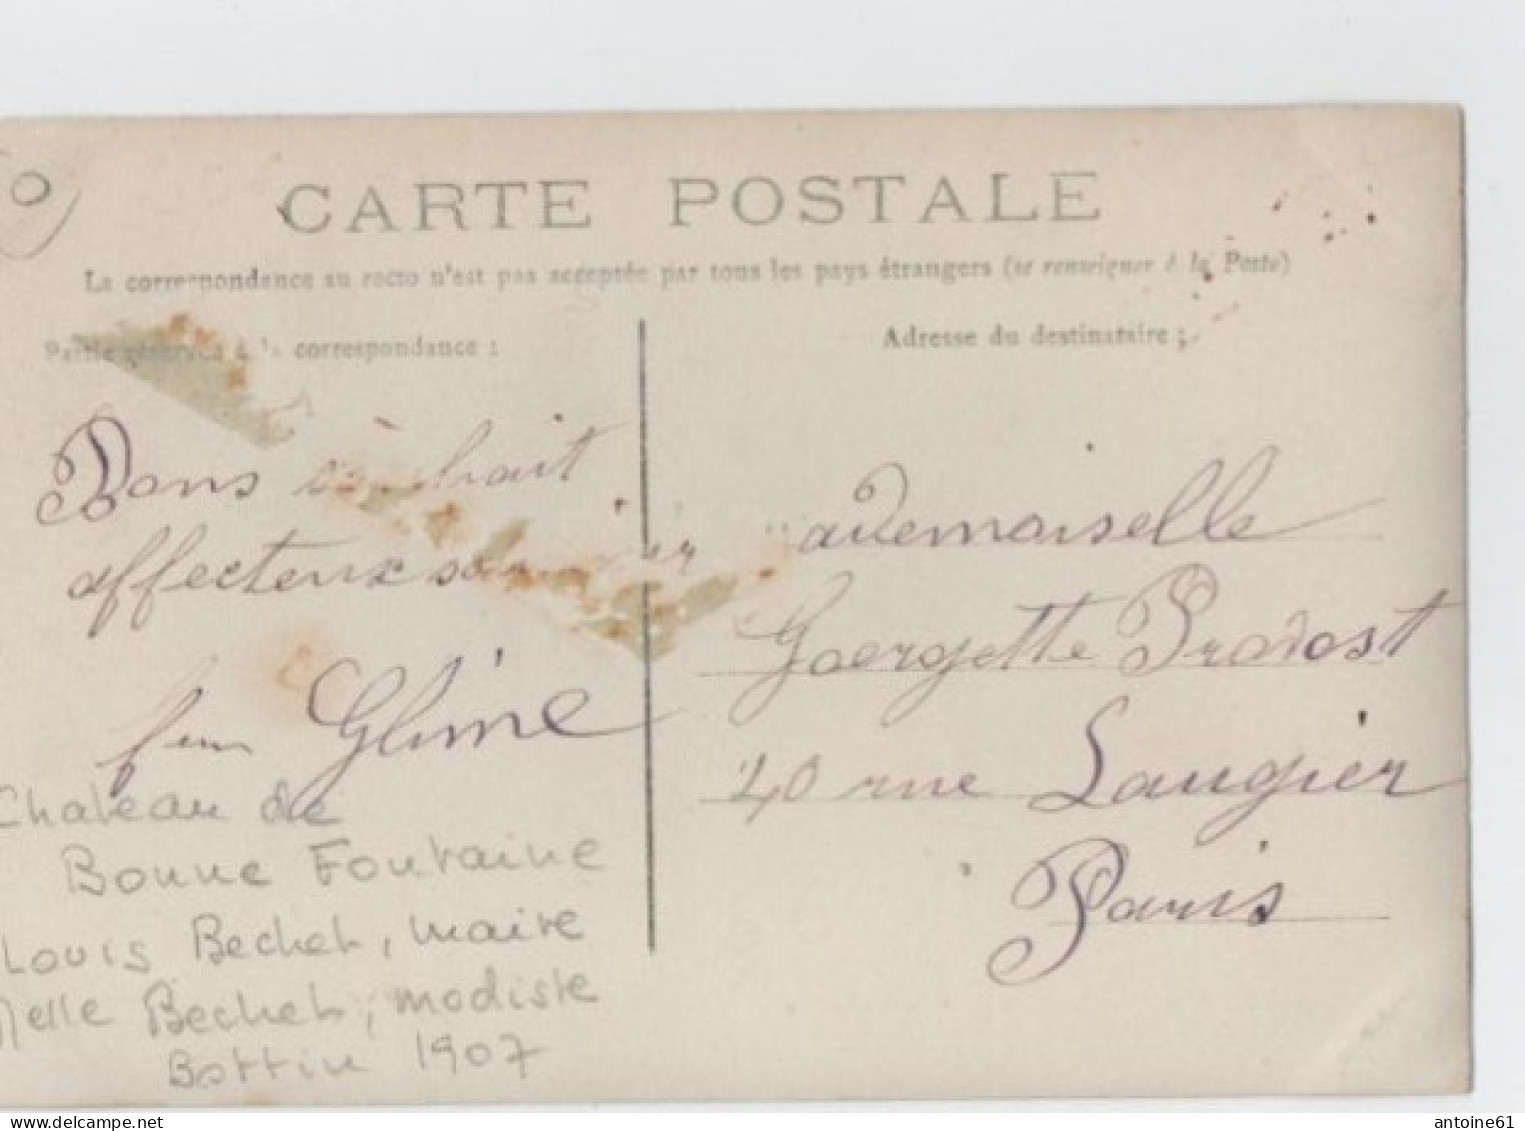 CARTE POSTALE
La correspondance au recto n'est pas acceptée par tous les pays étrangers (se renseigner à la Poste)
Partie réservée à la correspondance :
Adresse du destinataire :
Bons souhait
affecteux
Mademoiselle
Goergette Provost
40 rue Laugier
Paris
Chateau de
Bonne Fontaine
Louis Bechet, maire
Melle Bechet, modiste
Bottin 1907
antoine61
delcampe.net